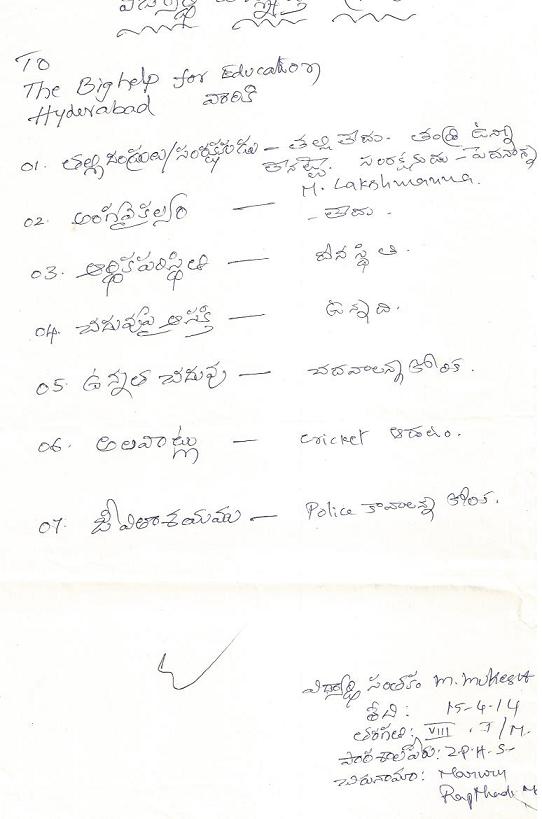 విద్యార్థి
To
The Big help for Education
Hyderabad వారికి
01. తల్లిదండ్రులు/సంరక్షకుడు - తల్లి లేదు. తండ్రి ఉన్నా
లేనట్టే. సంరక్షకుడు - పెదనాన్న
M. Lakshmanna.
02. అంగవైకల్యం — - లేదు.
03. ఆర్థికపరిస్థితి — దీనస్థితి.
04. చదువుపై ఆసక్తి — ఉన్నది.
05. ఉన్నత చదువు — చదవాలన్న కోరిక.
06. అలవాట్లు — cricket ఆడటం.
07. జీవితాశయము — Police కావాలన్న కోరిక.
విద్యార్థి సంతకం M. Mukesh
తేది: 15-4-14
తరగతి: VIII /M.
పాఠశాలపేరు: Z.P.H.S-
చిరునామా: